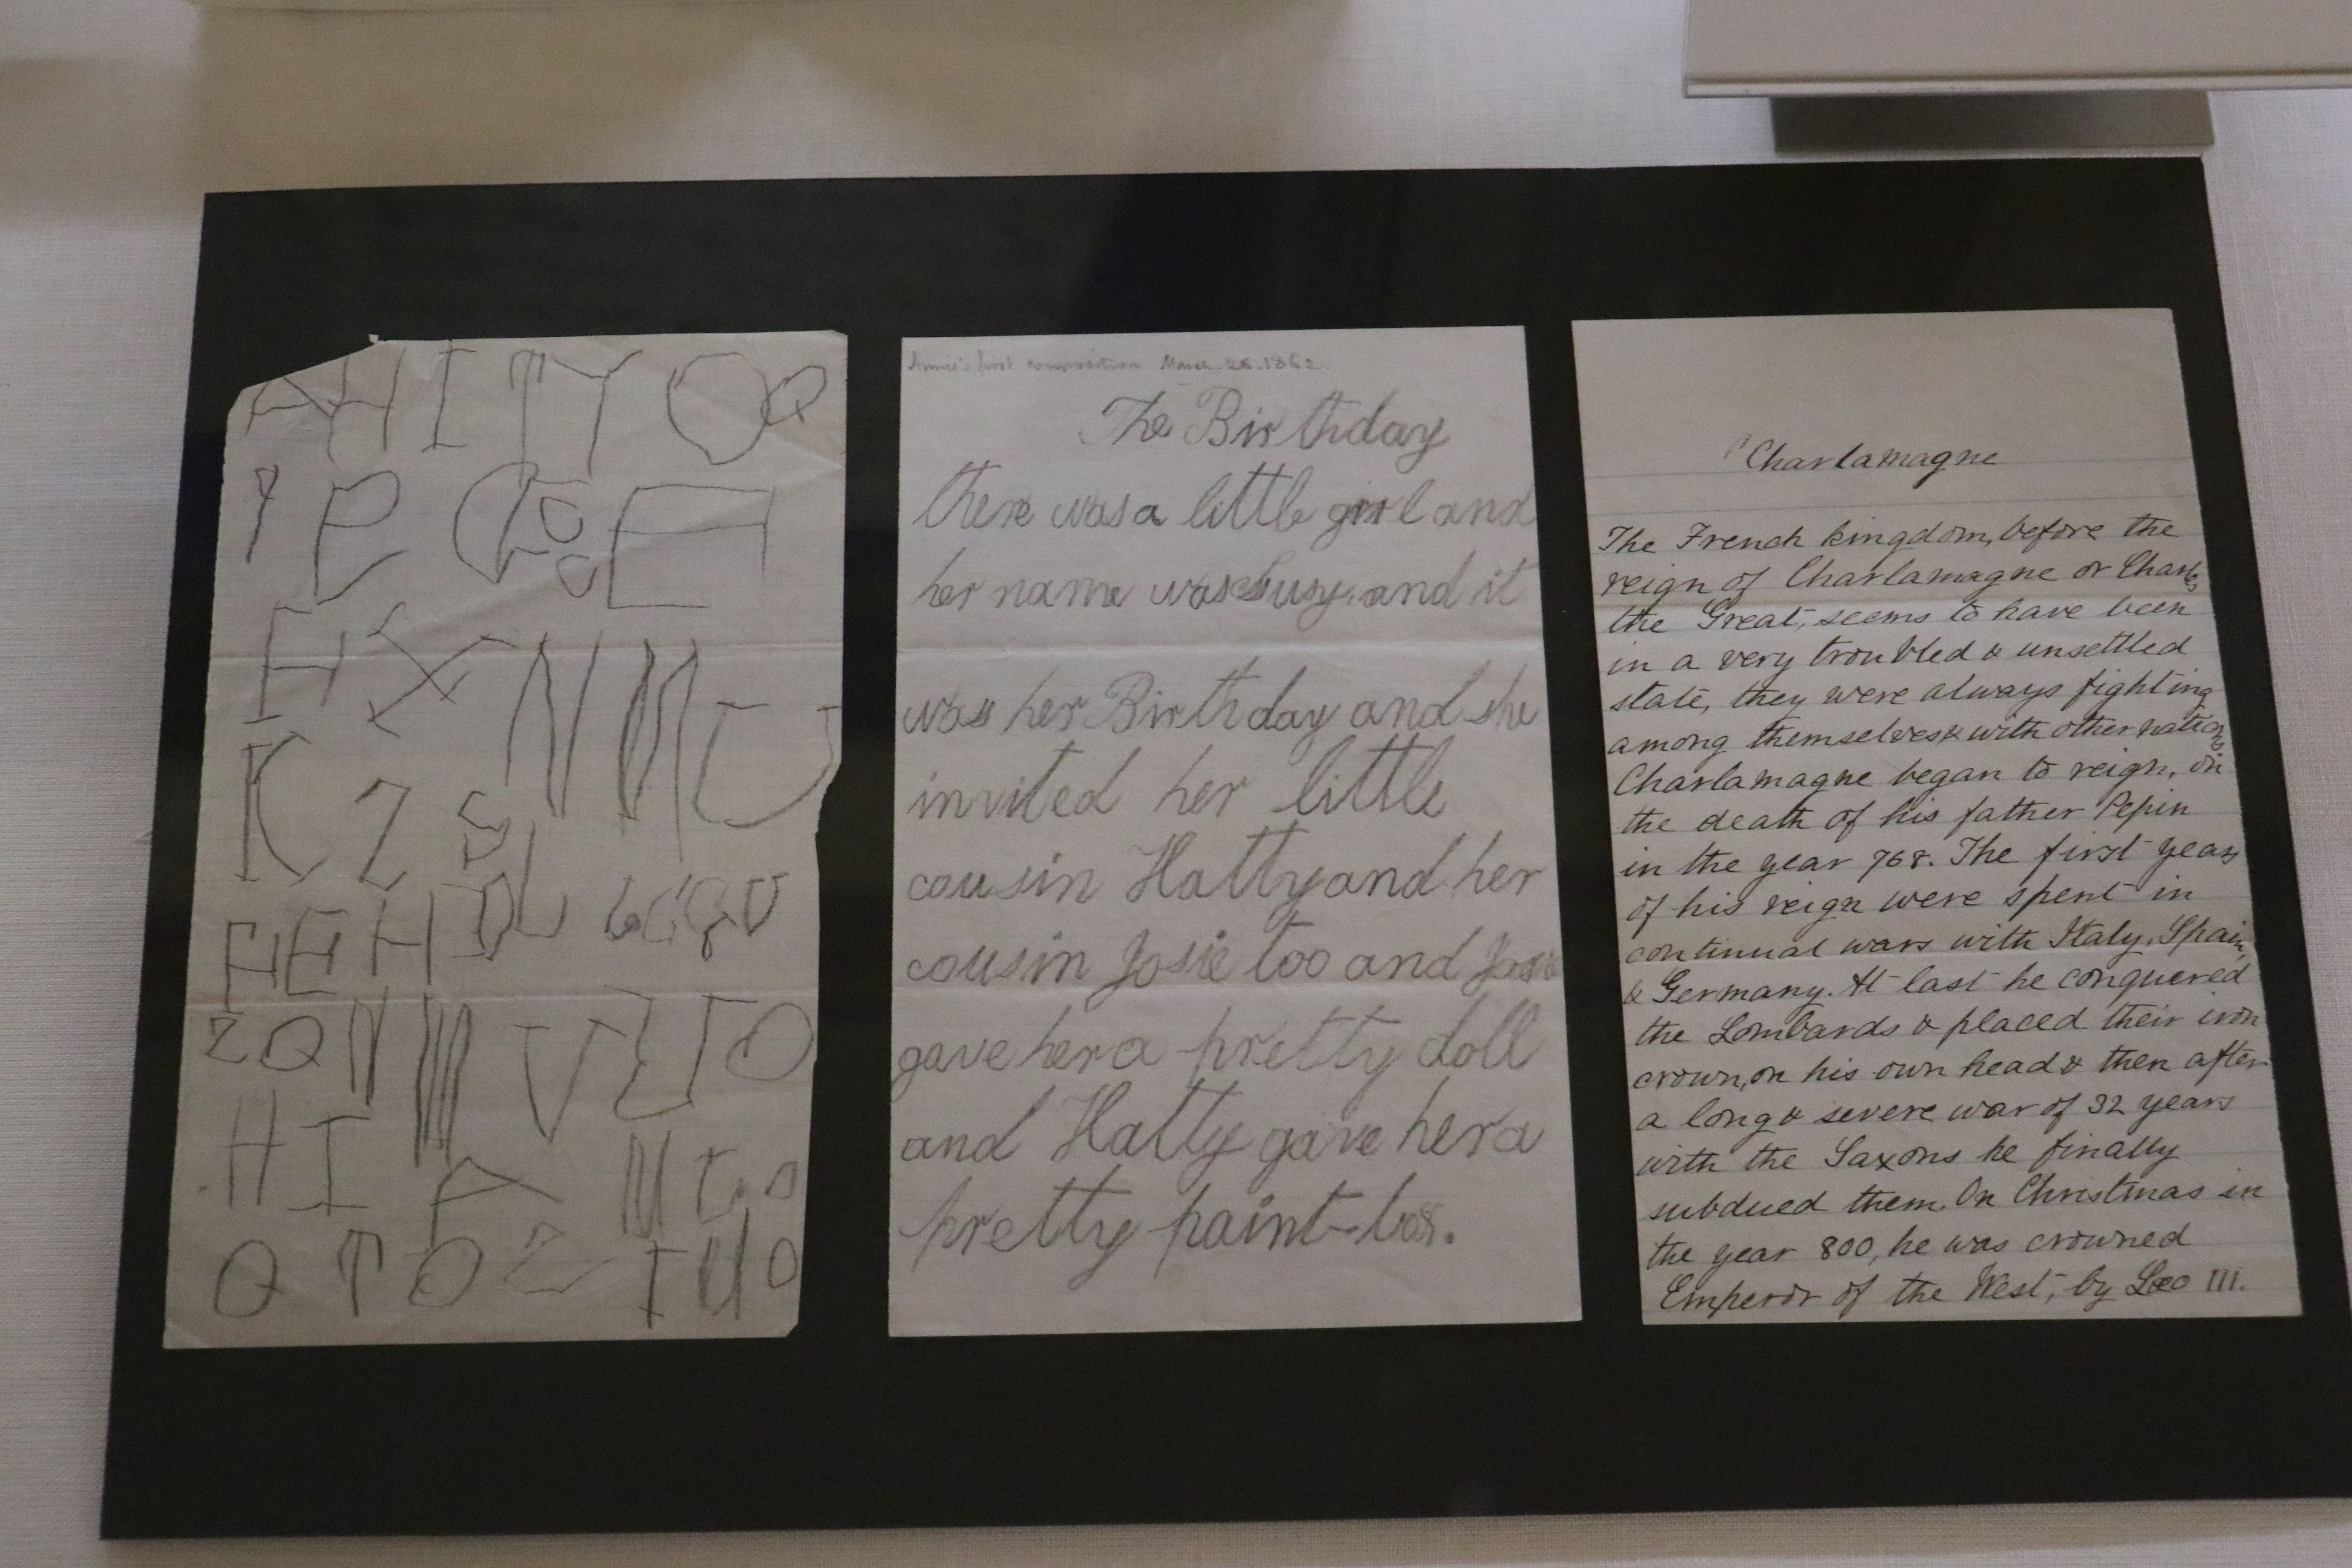 A H I T Y O Q
P R G B E
F X N M U
K Z S
F E H D L G C G U
Z Q N M V E J O
H I A N C O
Q T O Z I U O
Annie's first composition March. 26. 1862.
The Birthday
there was a little girl and
her name was Susy. and it
was her Birthday and she
invited her little
cousin Hatty and her
cousin Josie too and Josie
gave her a pretty doll
and Hatty gave her a
pretty paint-box.
Charlamagne
The French kingdom, before the
reign of Charlamagne or Charles
the Great, seems to have been
in a very troubled & unsettled
state, they were always fighting
among themselves & with other nations.
Charlamagne began to reign, on
the death of his father Pepin
in the year 768. The first years
of his reign were spent in
continual wars with Italy, Spain,
& Germany. At last he conquered
the Lombards & placed their iron
crown, on his own head & then after
a long & severe war of 32 years
with the Saxons he finally
subdued them. On Christmas in
the year 800, he was crowned
Emperor of the West, by Leo III.